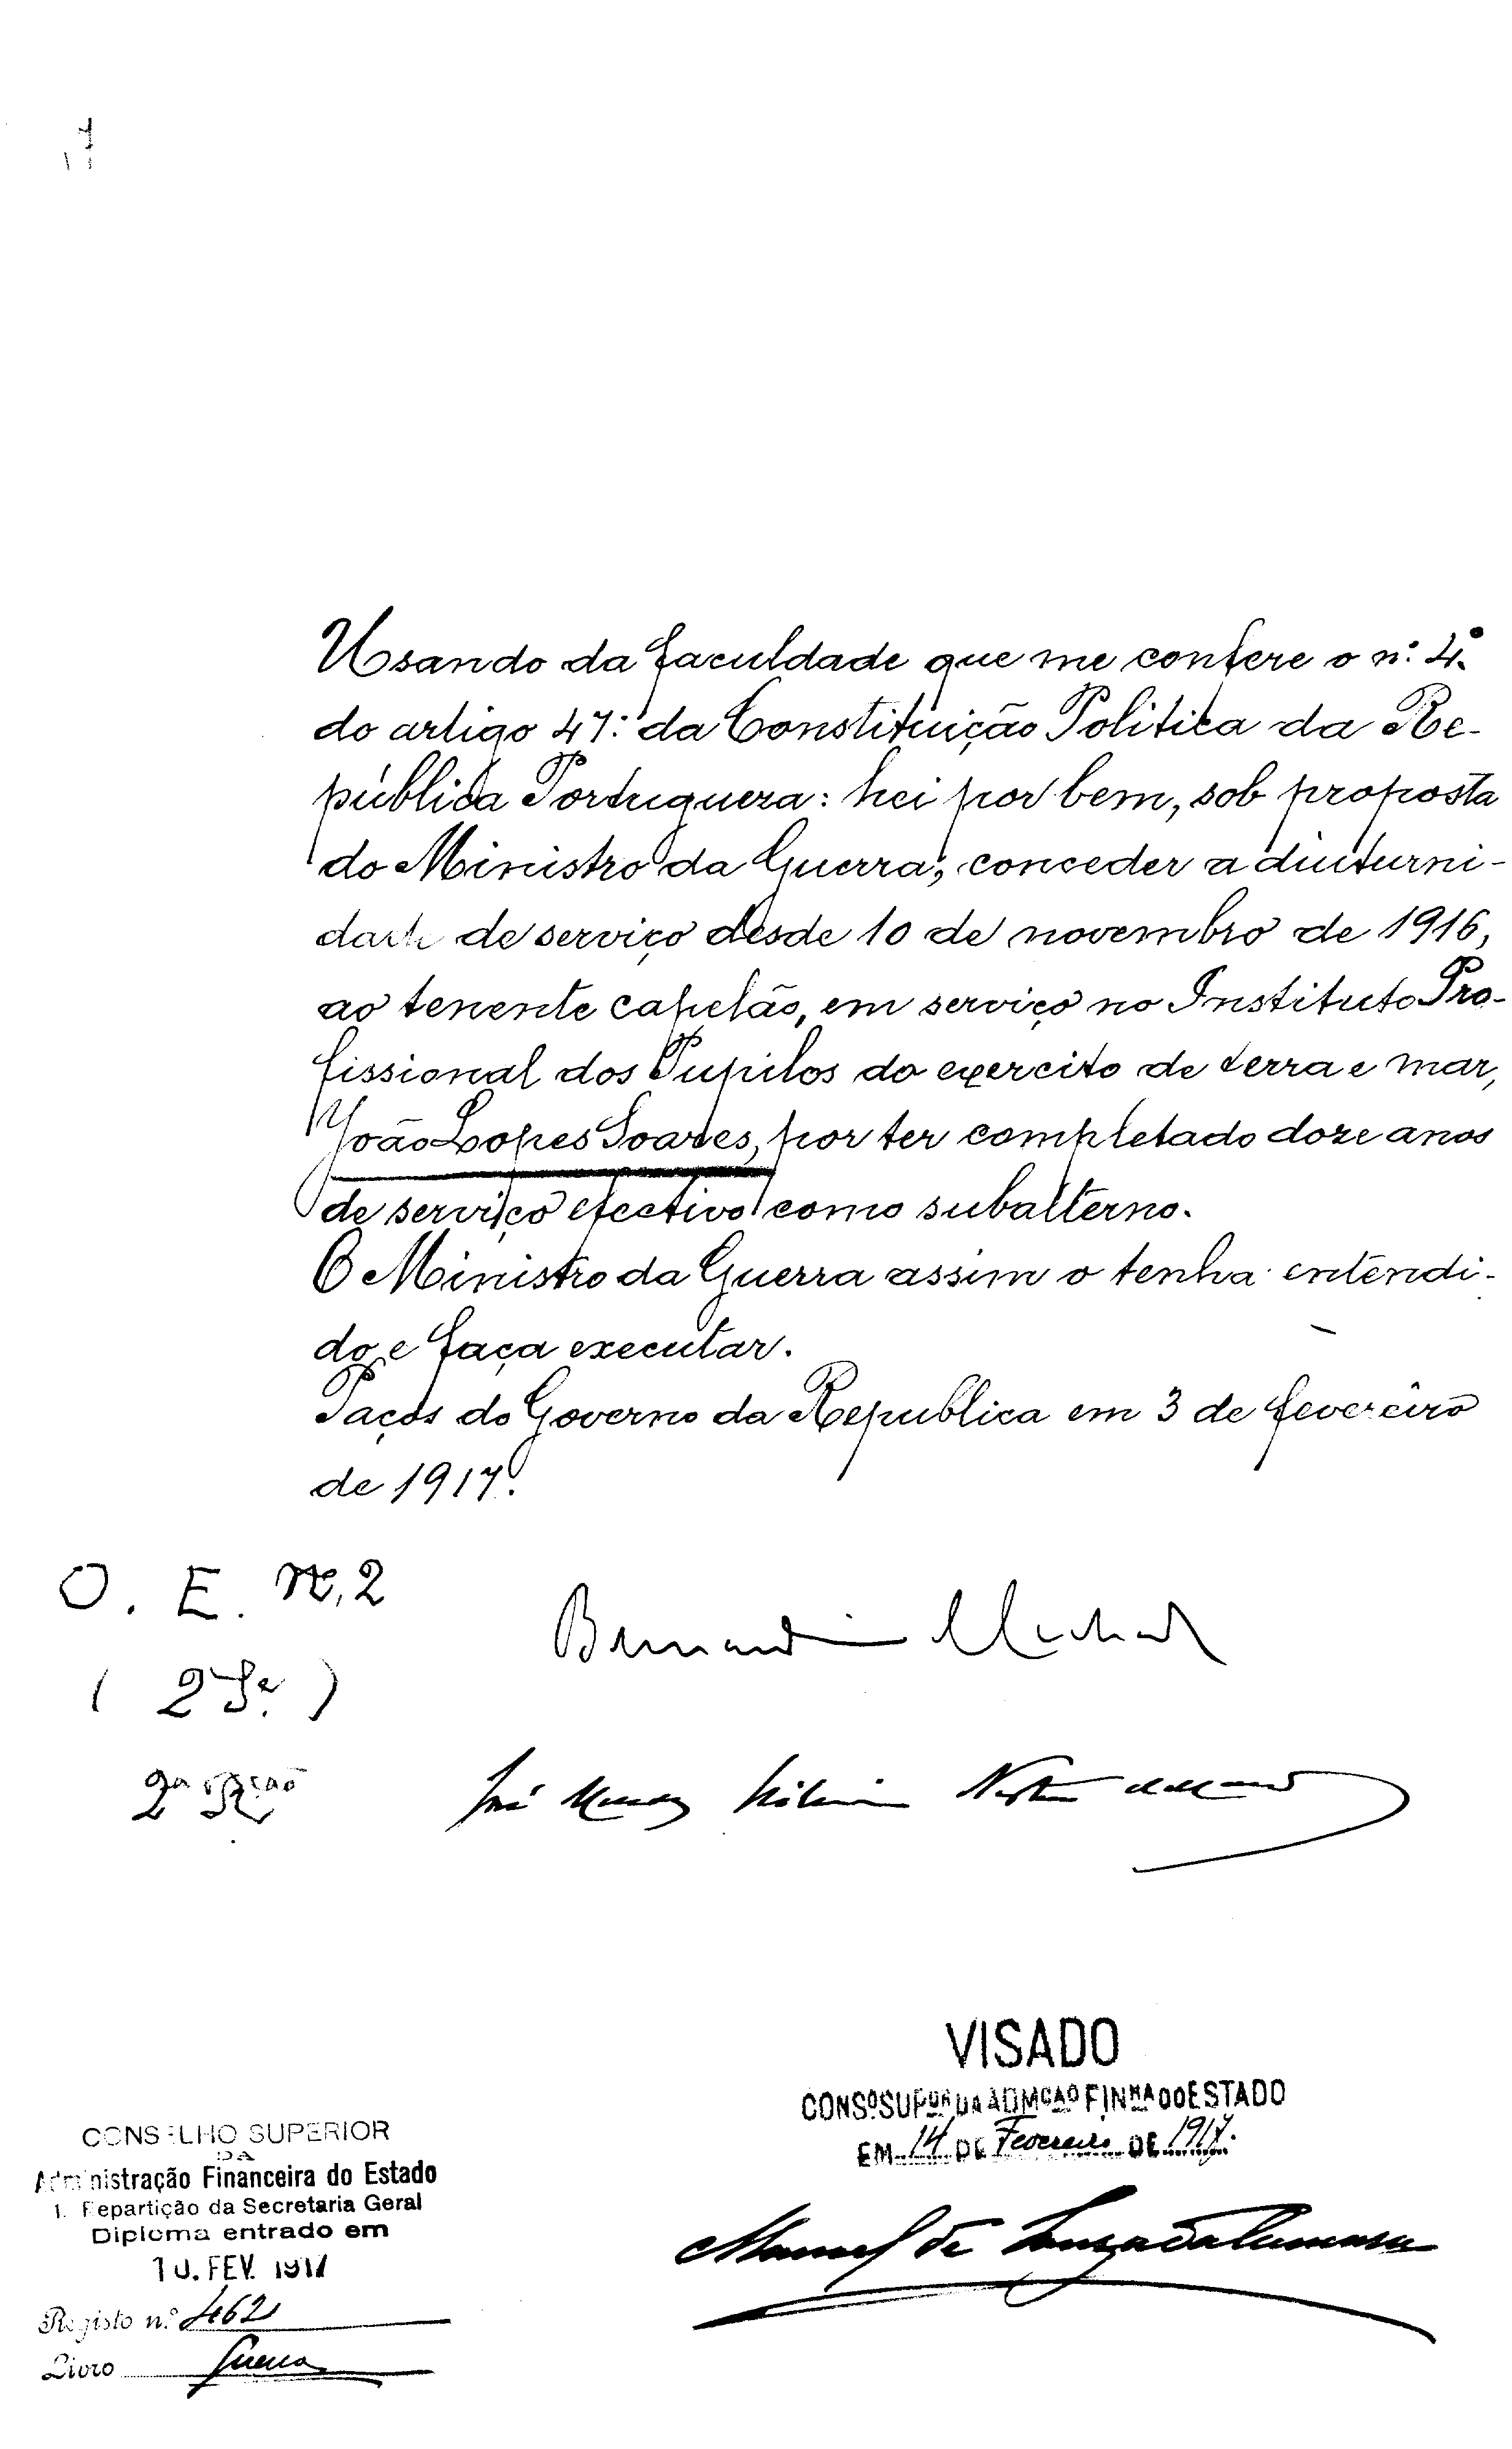 Usando da faculdade que me confere o n.º 4.º
do artigo 47.º da Constituição Politica da Re-
pública Portugueza: hei por bem, sob proposta
do Ministro da Guerra, conceder a diuturni-
dade de serviço desde 10 de novembro de 1916,
ao tenente capelão, em serviço no Instituto Pro-
fissional dos Pupilos do exercito de terra e mar,
João Lopes Soares, por ter completado doze anos
de serviço efectivo como subalterno.
O Ministro da Guerra assim o tenha entendi-
do e faça executar.
Paços do Governo da Republica em 3 de fevereiro
de 1917.
O. E. N.º 2
(2ª Se.)
2ª Rção
Bernardino Machado
José Mendes Ribeiro Norton de Matos
VISADO
CONSº SUPOR DA ADMÇÃO FINRA DO ESTADO
EM 14 DE Fevereiro DE 1917.
CONSELHO SUPERIOR
DA
Administração Financeira do Estado
1. Repartição da Secretaria Geral
Diploma entrado em
10. FEV. 1917
Registo n.º 462
Livro Guerra
Manuel de Souza da Camara